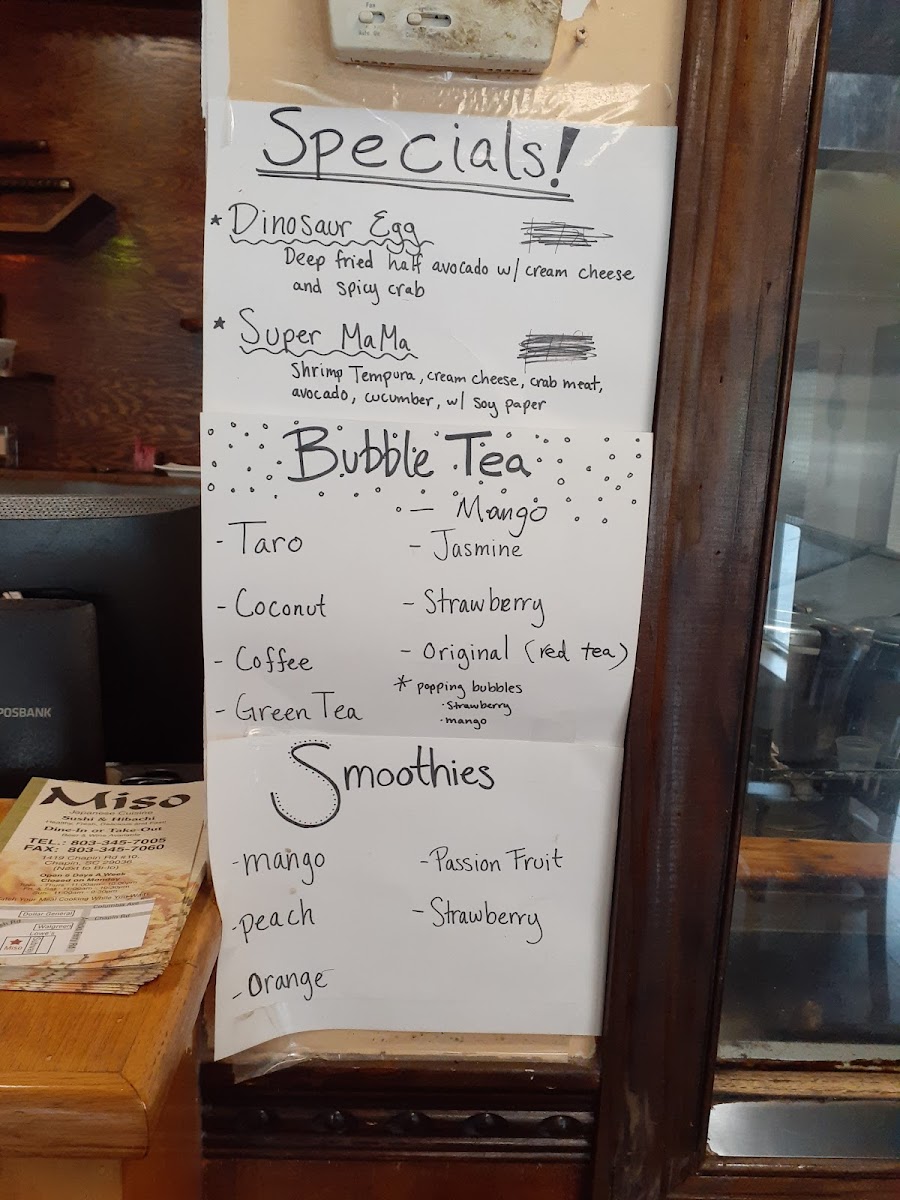 Specials!
* Dinosaur Egg
Deep fried half avocado w/ cream cheese
and spicy crab
* Super MaMa
Shrimp Tempura, cream cheese, crab meat,
avocado, cucumber, w/ soy paper
Bubble Tea
- Mango
- Taro
- Jasmine
- Coconut
- Strawberry
- Coffee
- Original (red tea)
- Green Tea
* popping bubbles
· Strawberry
· mango
Smoothies
- mango
- Passion Fruit
- peach
- Strawberry
- orange
POSBANK
Miso
Japanese Cuisine
Sushi & Hibachi
Dine-In or Take-Out
TEL.: 803-345-7005
FAX: 803-345-7060
1419 Chapin Rd #10.
Chapin, SC 29036
(Next to Bi-lo)
Open 6 Days A Week
Closed on Monday
Dollar General
Chapin Rd
Walgreen
Lowe's
Miso